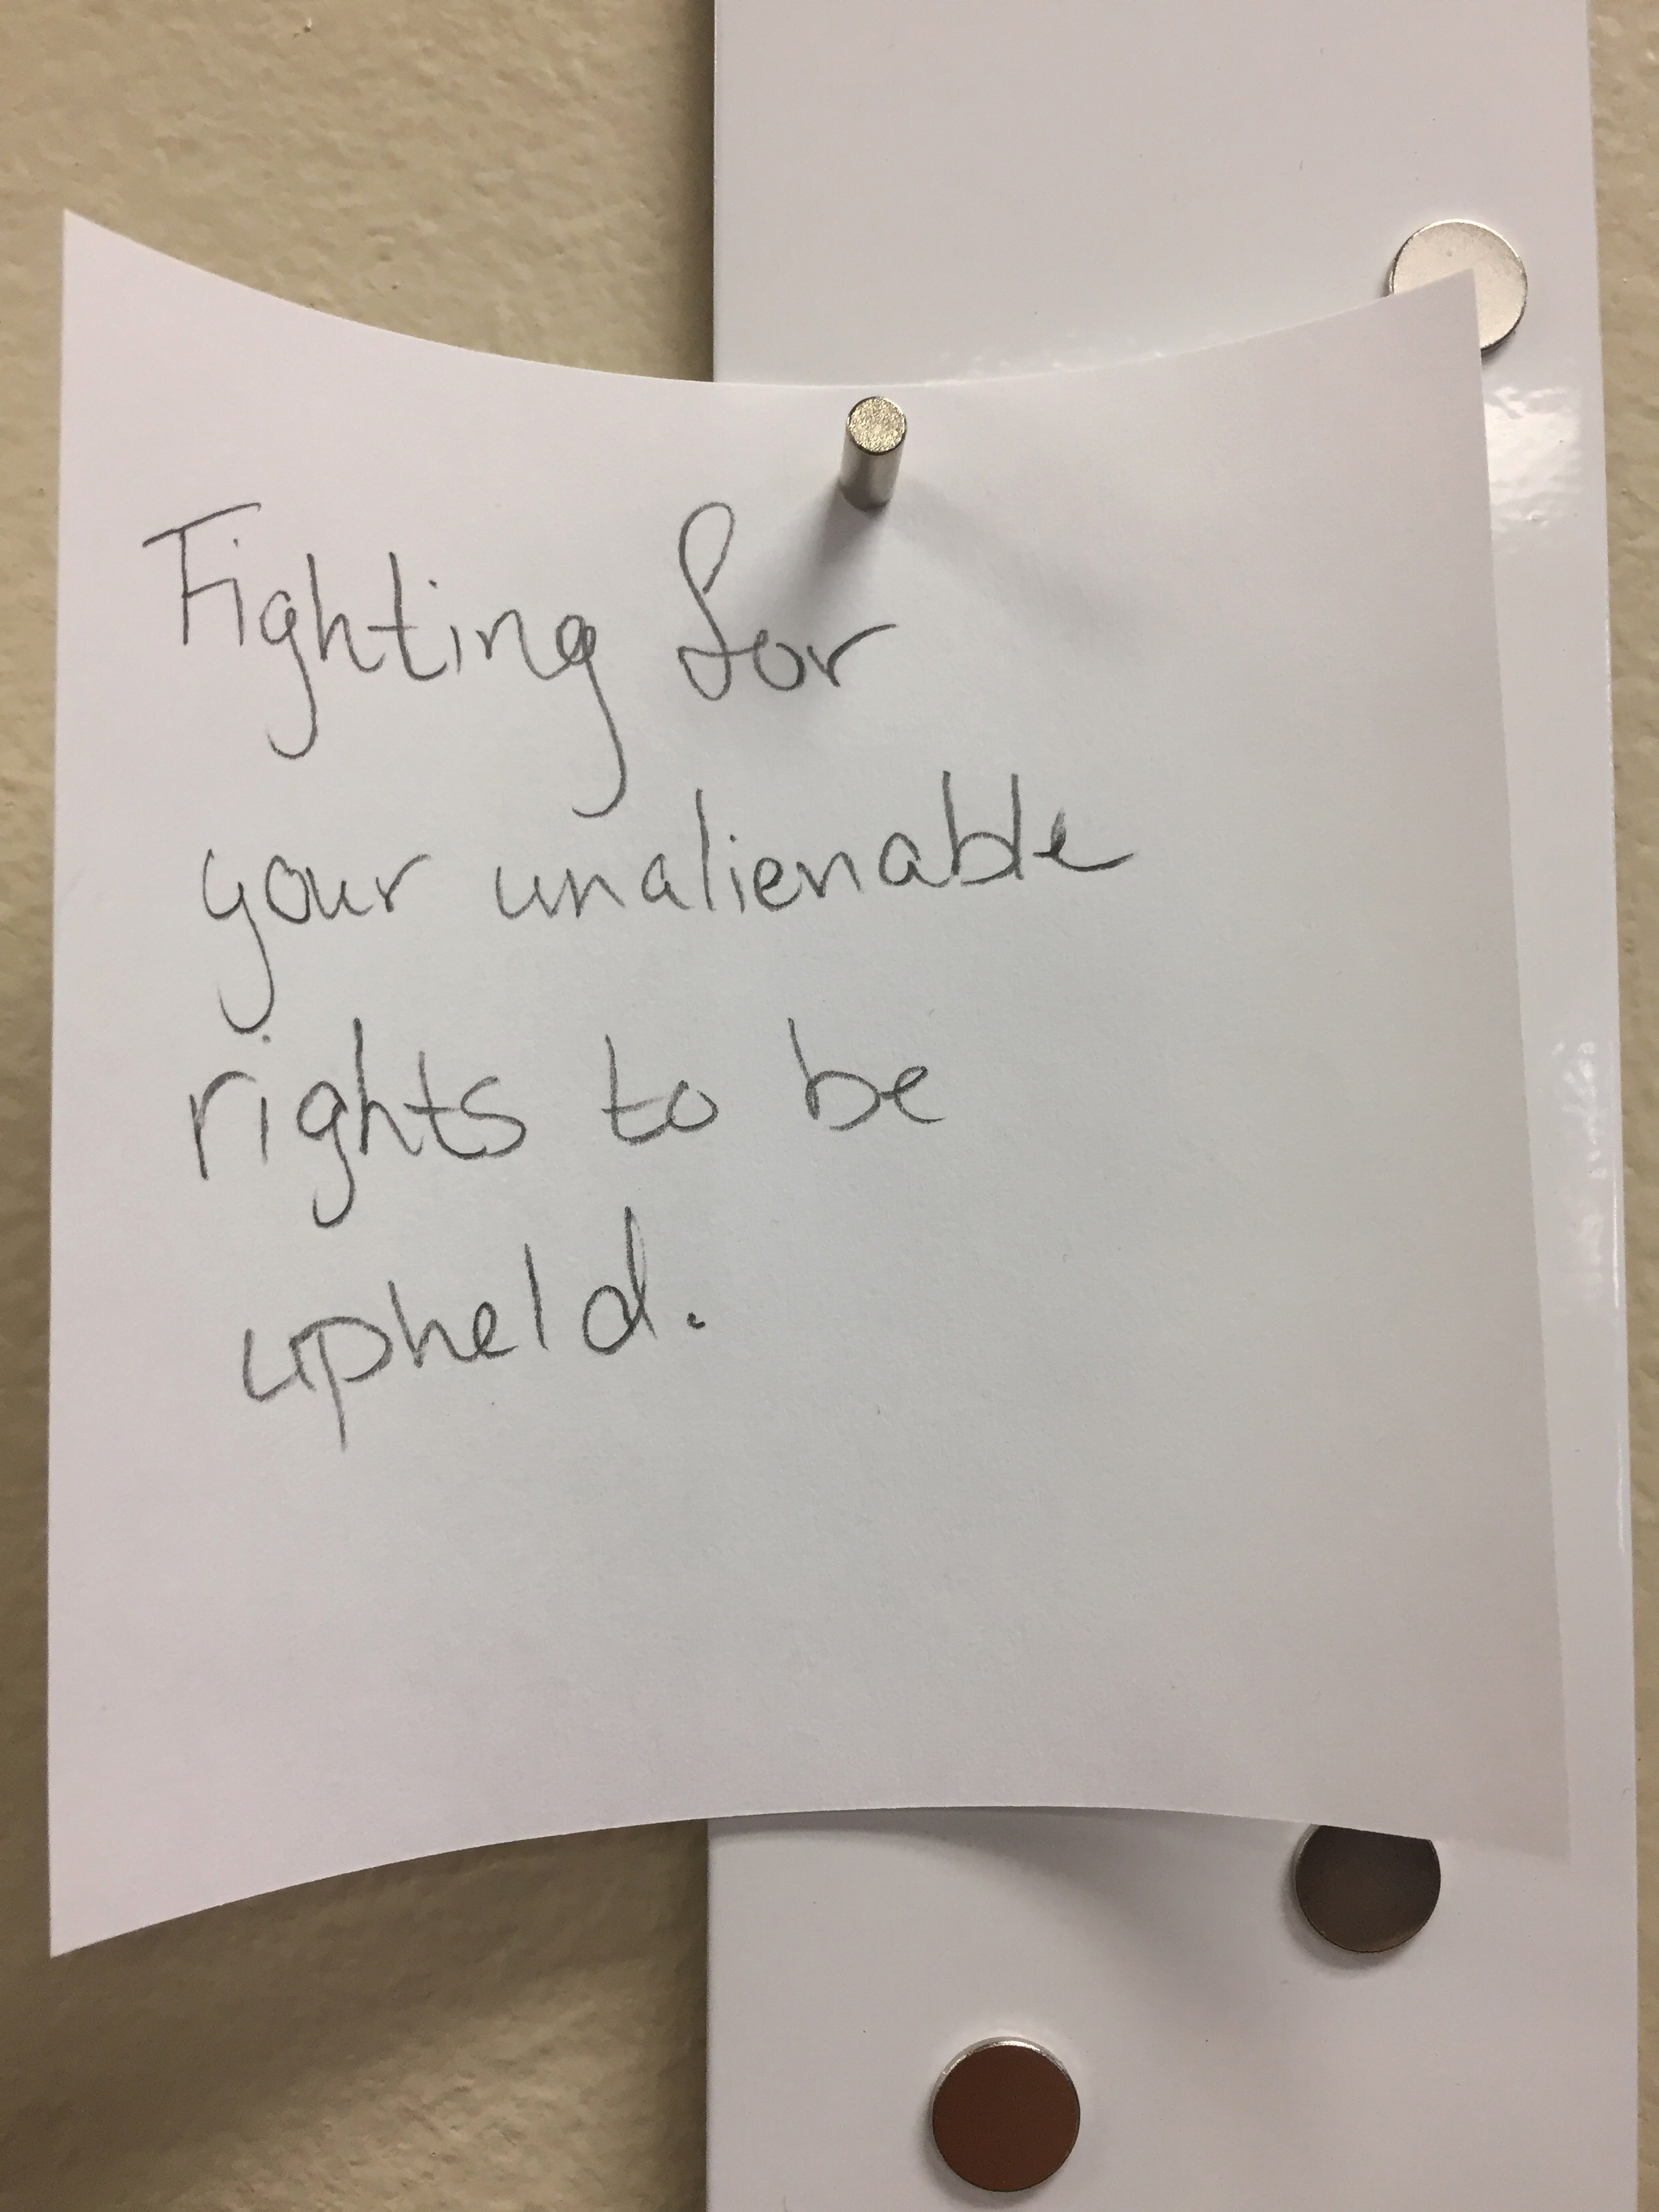 Fighting for
your unalienable
rights to be
upheld.